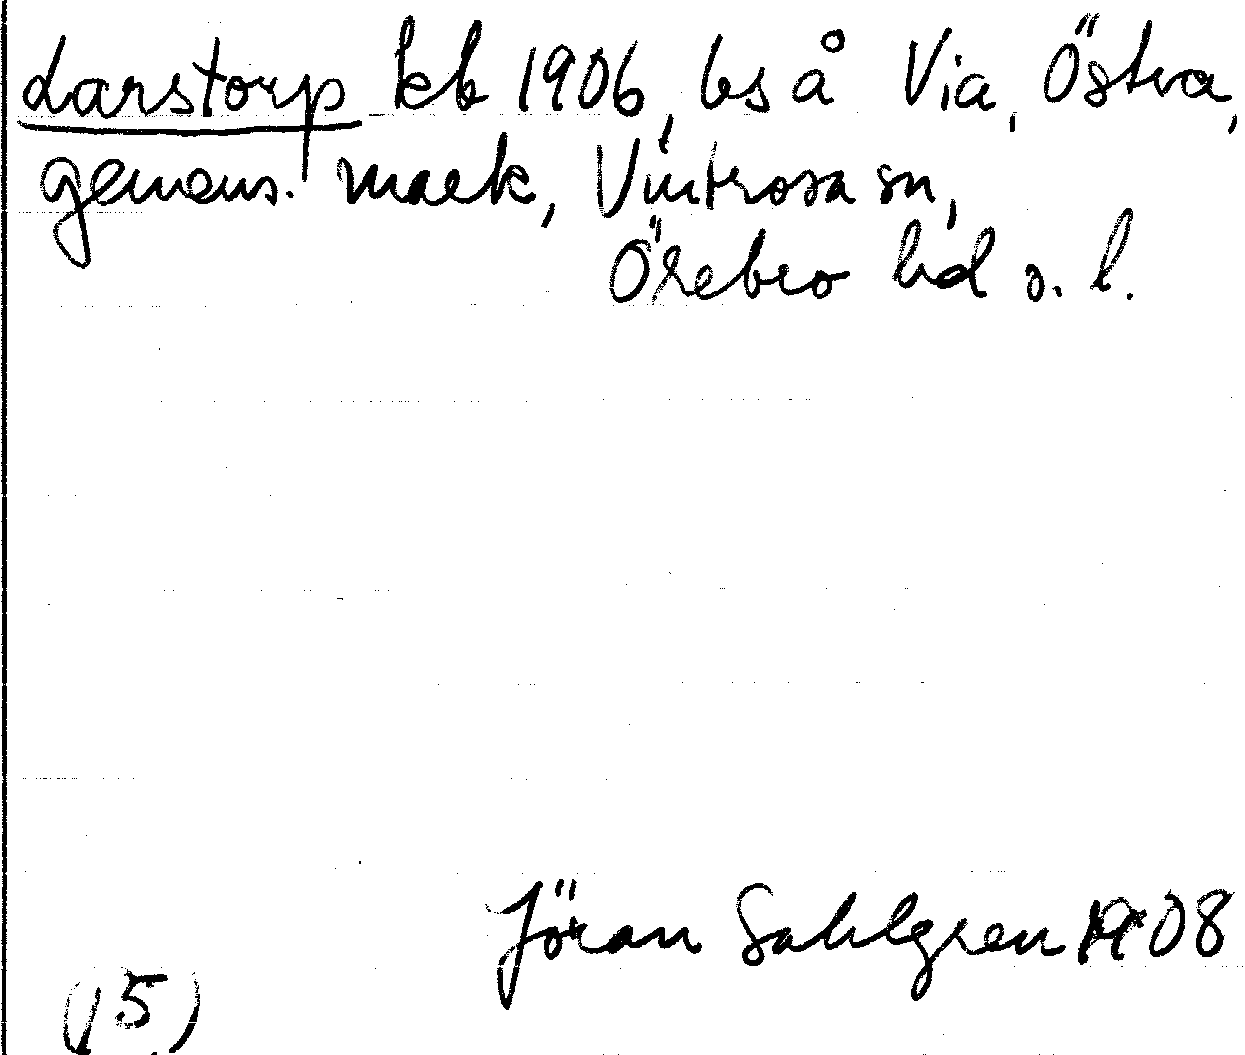 Larstorp kb 1906, bs å Via, Östra,
gemens. mark, Vintrosa sn,
Örebro hd o. l.
Jöran Sahlgren 1908
(15)